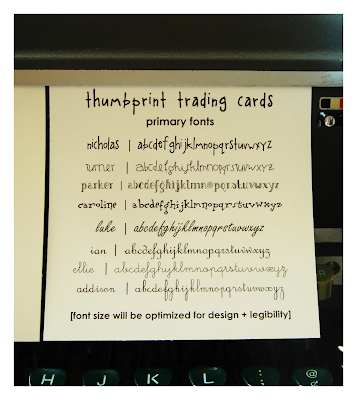 thumbprint trading cards
primary fonts
nicholas | abcdefghijklmnopqrstuvwxyz
turner | abcdefghijklmnopqrstuvwxyz
parker | abcdefghijklmnopqrstuvwxyz
caroline | abcdefghijklmnopqrstuvwxyz
luke | abcdefghijklmnopqrstuvwxyz
ian | abcdefghijklmnopqrstuvwxyz
ellie | abcdefghijklmnopqrstuvwxyz
addison | abcdefghijklmnopqrstuvwxyz
[font size will be optimized for design + legibility]
H J K L